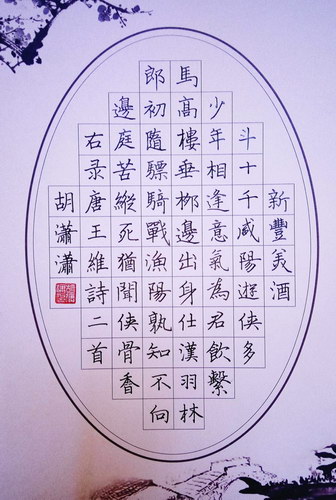 新豐美酒
斗十千咸陽遊俠多
少年相逢意氣為君飲繫
馬高樓垂柳邊出身仕漢羽林
郎初隨驃騎戰漁陽孰知不向
邊庭苦縱死猶聞俠骨香
右录唐王維詩二首
胡瀟瀟